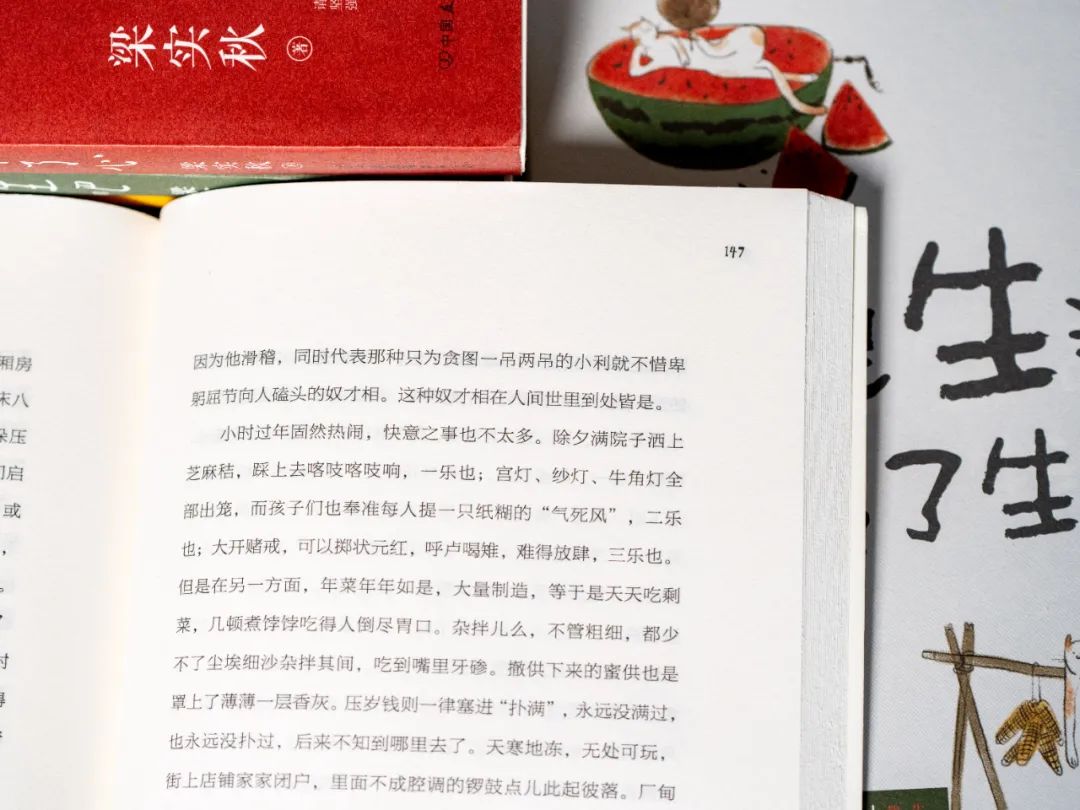 梁实秋 著
请坚强
中国
梁实秋 著
147
厢房
末八
朵压
启
或
，
。
时
得
因为他滑稽，同时代表那种只为贪图一吊两吊的小利就不惜卑
躬屈节向人磕头的奴才相。这种奴才相在人间世里到处皆是。
小时过年固然热闹，快意之事也不太多。除夕满院子洒上
芝麻秸，踩上去喀吱喀吱响，一乐也；宫灯、纱灯、牛角灯全
部出笼，而孩子们也奉准每人提一只纸糊的“气死风”，二乐
也；大开赌戒，可以掷状元红，呼卢喝雉，难得放肆，三乐也。
但是在另一方面，年菜年年如是，大量制造，等于是天天吃剩
菜，几顿煮饽饽吃得人倒尽胃口。杂拌儿么，不管粗细，都少
不了尘埃细沙杂拌其间，吃到嘴里牙碜。撤供下来的蜜供也是
罩上了薄薄一层香灰。压岁钱则一律塞进“扑满”，永远没满过，
也永远没扑过，后来不知到哪里去了。天寒地冻，无处可玩，
街上店铺家家闭户，里面不成腔调的锣鼓点儿此起彼落。厂甸
生
了生